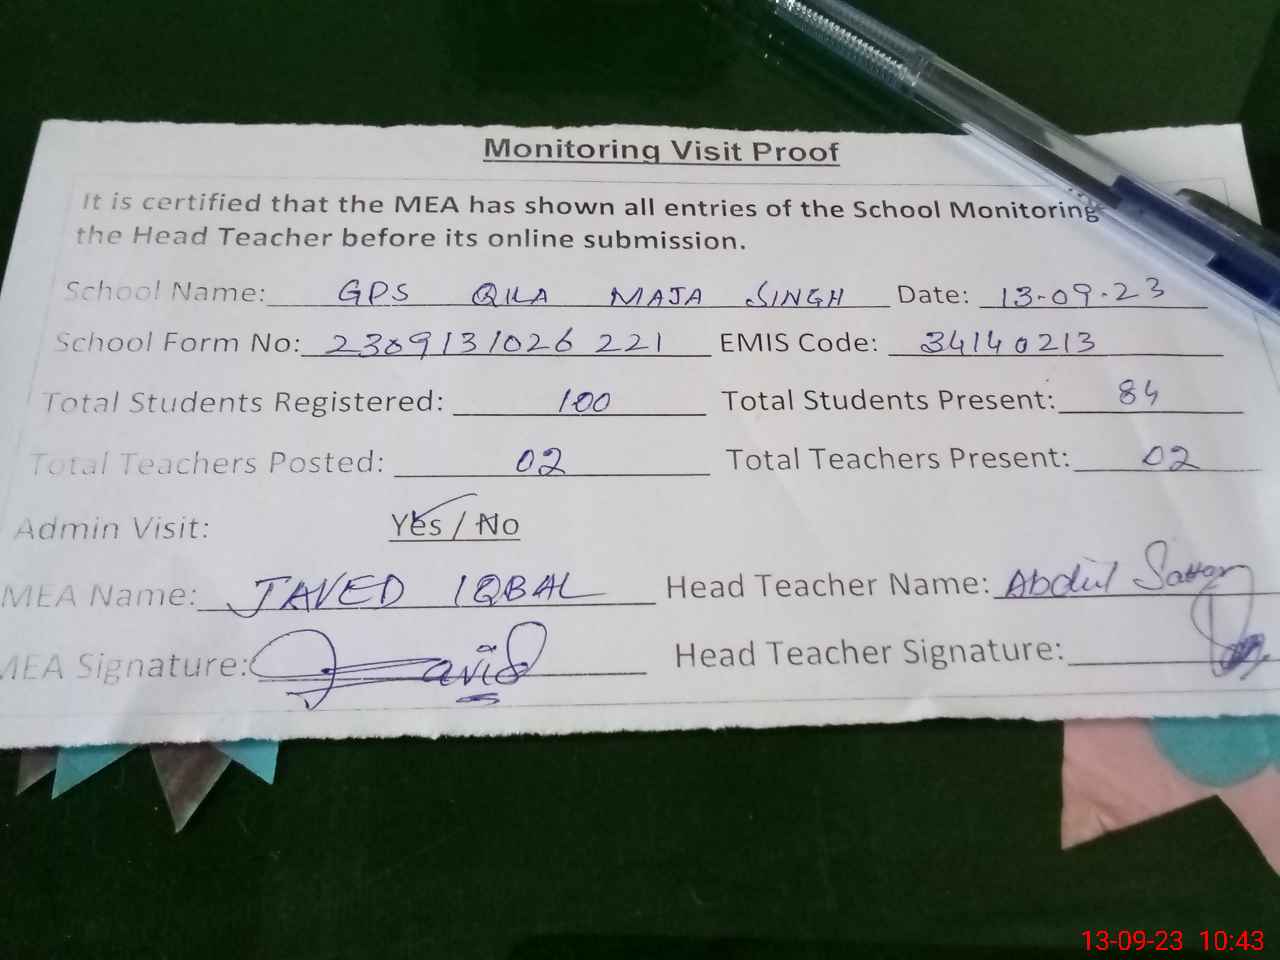 Monitoring Visit Proof
It is certified that the MEA has shown all entries of the School Monitoring
the Head Teacher before its online submission.
School Name: GPS QILA MAJA SINGH Date: 13-09-23
School Form No: 2309131026 221 EMIS Code: 34140213
Total Students Registered: 100 Total Students Present: 84
Total Teachers Posted: 02 Total Teachers Present: 02
Admin Visit: Yes / No
MEA Name: JAVED IQBAL Head Teacher Name: Abdul Sattar
MEA Signature: Javid Head Teacher Signature:
13-09-23 10:43